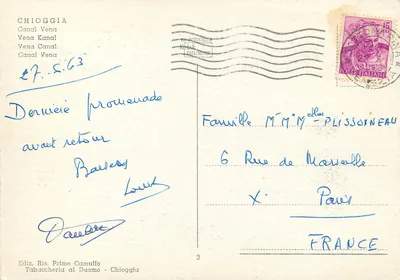 CHIOGGIA
Canal Vena
Vena Kanal
Vena Canal
Canal Vena
27.5.63
Dernière promenade
avant retour
Baisers
Famille M M M elles - PLISSONEAU
6 Rue de Marseille
X Paris
FRANCE
Ediz. Ris. Primo Casculfo
Tabaccheria al Duomo - Chioggia
3
15